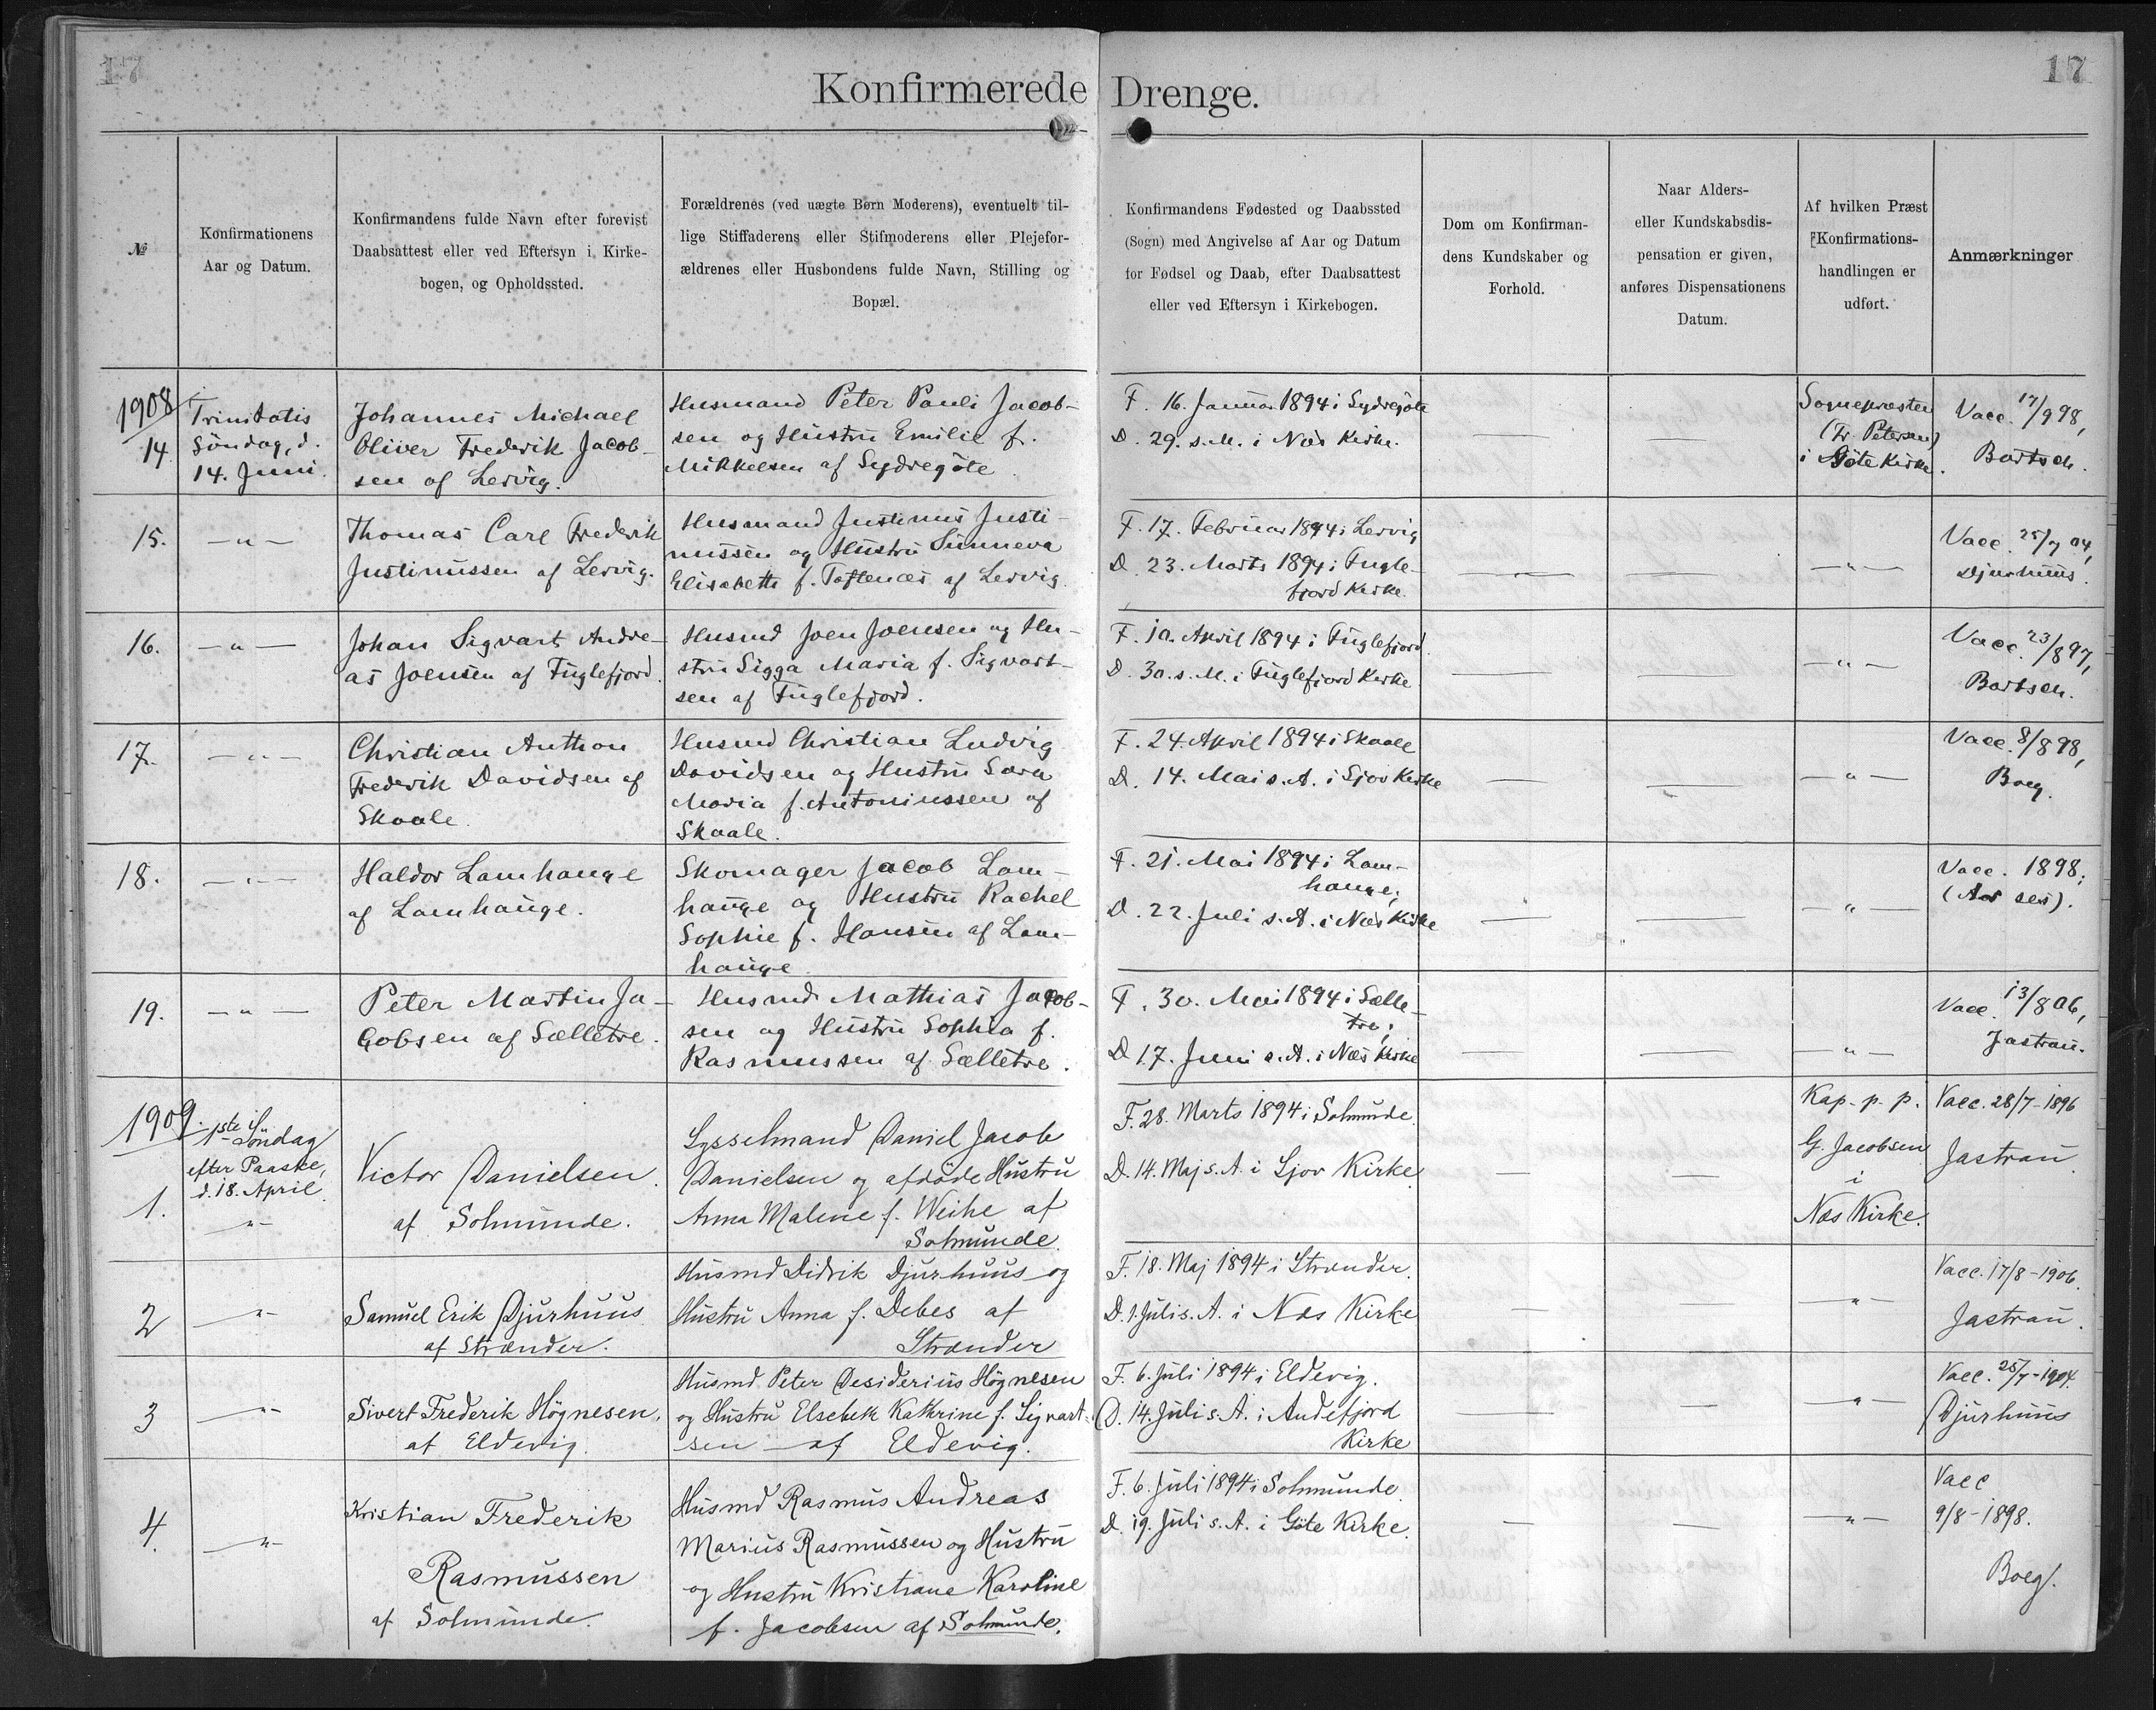 17
17
Konfirmerede Drenge.
№
Konfirmationens
Aar og Datum.
Konfirmandens fulde Navn efter forevist
Daabsattest eller ved Eftersyn i Kirke-
bogen, og Opholdssted.
Forældrenes (ved uægte Børn Moderens), eventuelt til-
lige Stiffaderens eller Stifmoderens eller Plejefor-
ældrenes eller Husbondens fulde Navn, Stilling og
Bopæl.
Konfirmandens Fødested og Daabssted
(Sogn) med Angivelse af Aar og Datum
for Fødsel og Daab, efter Daabsattest
eller ved Eftersyn i Kirkebogen.
Dom om Konfirman-
dens Kundskaber og
Forhold.
Naar Alders-
eller Kundskabsdis-
pensation er given,
anføres Dispensationens
Datum.
Af hvilken Præst
Konfirmations-
handlingen er
udført.
Anmærkninger
1908
14.
Trinitatis
Söndag, d.
14. Juni.
Johannes Michael
Oliver Frederik Jacob-
sen af Lervig.
Husmand Peter Pauli Jacob-
sen og Hustru Emilie f.
Mikkelsen af Sydregöte
F. 16. Januar 1894 i Sydregöte
D. 29. s. M. i Næs Kirke.
—
—
Sognepræsten
(Fr. Petersen)
i Göte Kirke.
Vacc. 17/9 98,
Bartsch.
15.
—"—
Thomas Carl Frederik
Justinussen af Lervig.
Husmand Justinus Justi-
nussen og Hustru Sunneva
Elisabeth f. Toftenæs af Lervig.
F. 17. Februar 1894 i Lervig
D. 23. Marts 1894 i Fugle-
fjord Kirke.
—
—
—"—
Vacc. 25/7 04,
Djurhuus.
16.
—"—
Johan Sigvart Andre-
as Joensen af Fuglefjord.
Husmd Joen Joensen og Hu-
stru Sigga Maria f. Sigvart-
sen af Fuglefjord.
F. 10. April 1894 i Fuglefjord.
D. 30. s. M. i Fuglefjord Kirke
—
—
—"—
Vacc. 23/8 97,
Bartsch.
17.
—"—
Christian Anthon
Frederik Davidsen af
Skaale.
Husmd Christian Ludvig
Davidsen og Hustru Sara
Maria f. Antoniussen af
Skaale.
F. 24. April 1894 i Skaale
D. 14. Mai s. A. i Sjov Kirke
—
—
—"—
Vacc. 8/8 98,
Boeg.
18.
—"—
Haldor Lamhauge
af Lamhauge.
Skomager Jacob Lam-
hauge og Hustru Rachel
Sophie f. Hansen af Lam-
hauge
F. 21. Mai 1894 i Lam-
hauge;
D. 22. Juli s. A. i Næs Kirke
—
—
—"—
Vacc. 1898;
19.
—"—
Peter Martin Ja-
cobsen af Sælletre.
Husmd. Mathias Jacob-
sen og Hustru Sophia f.
Rasmussen af Sælletre.
F. 30. Mai 1894 i Sælle-
tre;
D. 17. Juni s. A. i Næs Kirke
—
—
—"—
Vacc. 13/8 06,
Jastrau.
1909.
1.
1ste Söndag
efter Paaske,
d. 18. April.
—"—
Victor Danielsen
af Solmunde.
Sysselmand Daniel Jacob
Danielsen og afdöde Hustru
Anna Malene f. Weihe af
Solmunde.
F. 28. Marts 1894 i Solmunde
D. 14. Maj s. A. i Sjov Kirke
—
—
Kap. p. p.
G. Jacobsen
i
Næs Kirke.
Vacc. 28/7-1896
Jastrau.
2
—"—
Samuel Erik Djurhuus
af Strænder.
Husmd Didrik Djurhuus og
Hustru Anna f. Debes af
Strænder
F. 18. Maj 1894 i Strænder.
D. 1. Juli s. A. i Næs Kirke
—
—
—"—
Vacc. 17/8-1906.
Jastrau.
3
—"—
Sivert Frederik Högnesen.
af Eldevig.
Husmd Peter Desiderius Högnesen
og Hustru Elsebeth Kathrine f. Sigvart-
sen af Eldevig.
F. 6. Juli 1894 i Eldevig.
D. 14. Juli s. A. i Andefjord
Kirke
—
—
—"—
Vacc. 25/7-1904.
Djurhuus
4.
—"—
Kristian Frederik
Rasmussen
af Solmunde.
Husmd Rasmus Andreas
Marius Rasmussen og Hustru
og Hustru Kristiane Karoline
f. Jacobsen af Solmunde.
F. 6. Juli 1894 i Solmunde.
D. 19. Juli s. A. i Göte Kirke.
—
—
—"—
Vacc
9/8-1898.
Boeg.